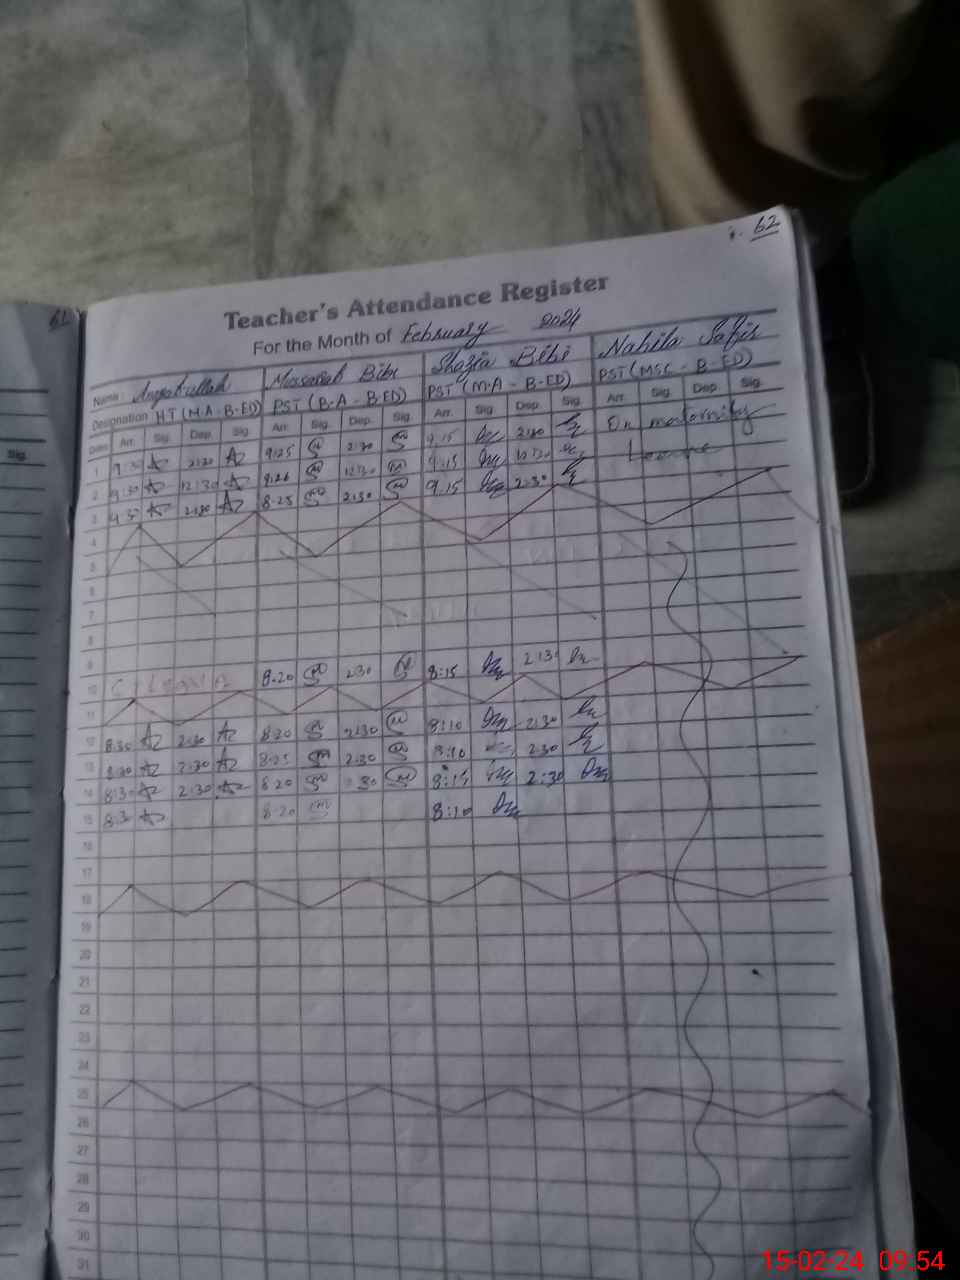 62
61
Teacher's Attendance Register
For the Month of February 2024
Name Mussarat Bibi Shazia Bibi Nabila Safir
Designation HT (M.A - B-ED) PST (B-A - B-ED) PST (M-A - B-ED) PST (MSC - B-ED)
Sig.
Date Arr. Sig. Dep. Sig. Arr. Sig. Dep. Sig. Arr. Sig. Dep. Sig. Arr. Sig. Dep. Sig.
1 9:30 2:30 9:25 2:30 9:15 2:30 On
2 9:30 12:30 12:30 9:15 12:30
3 9:30 2:30 8:25 2:30 9.15 2:30
4
5
6
7
8
9
10 C/Leave 8.20 2:30 8:15 2:30
11
12 8:30 2:30 8:20 2:30 8:10 2:30
13 8:30 2:30 8:25 2:30 8:10 2:30
14 8:30 2:30 8:20 2:30 8:15 2:30
15 8:3 8:20 8:10
16
17
18
19
20
21
22
23
24
25
26
27
28
29
30
31
15-02-24 09:54